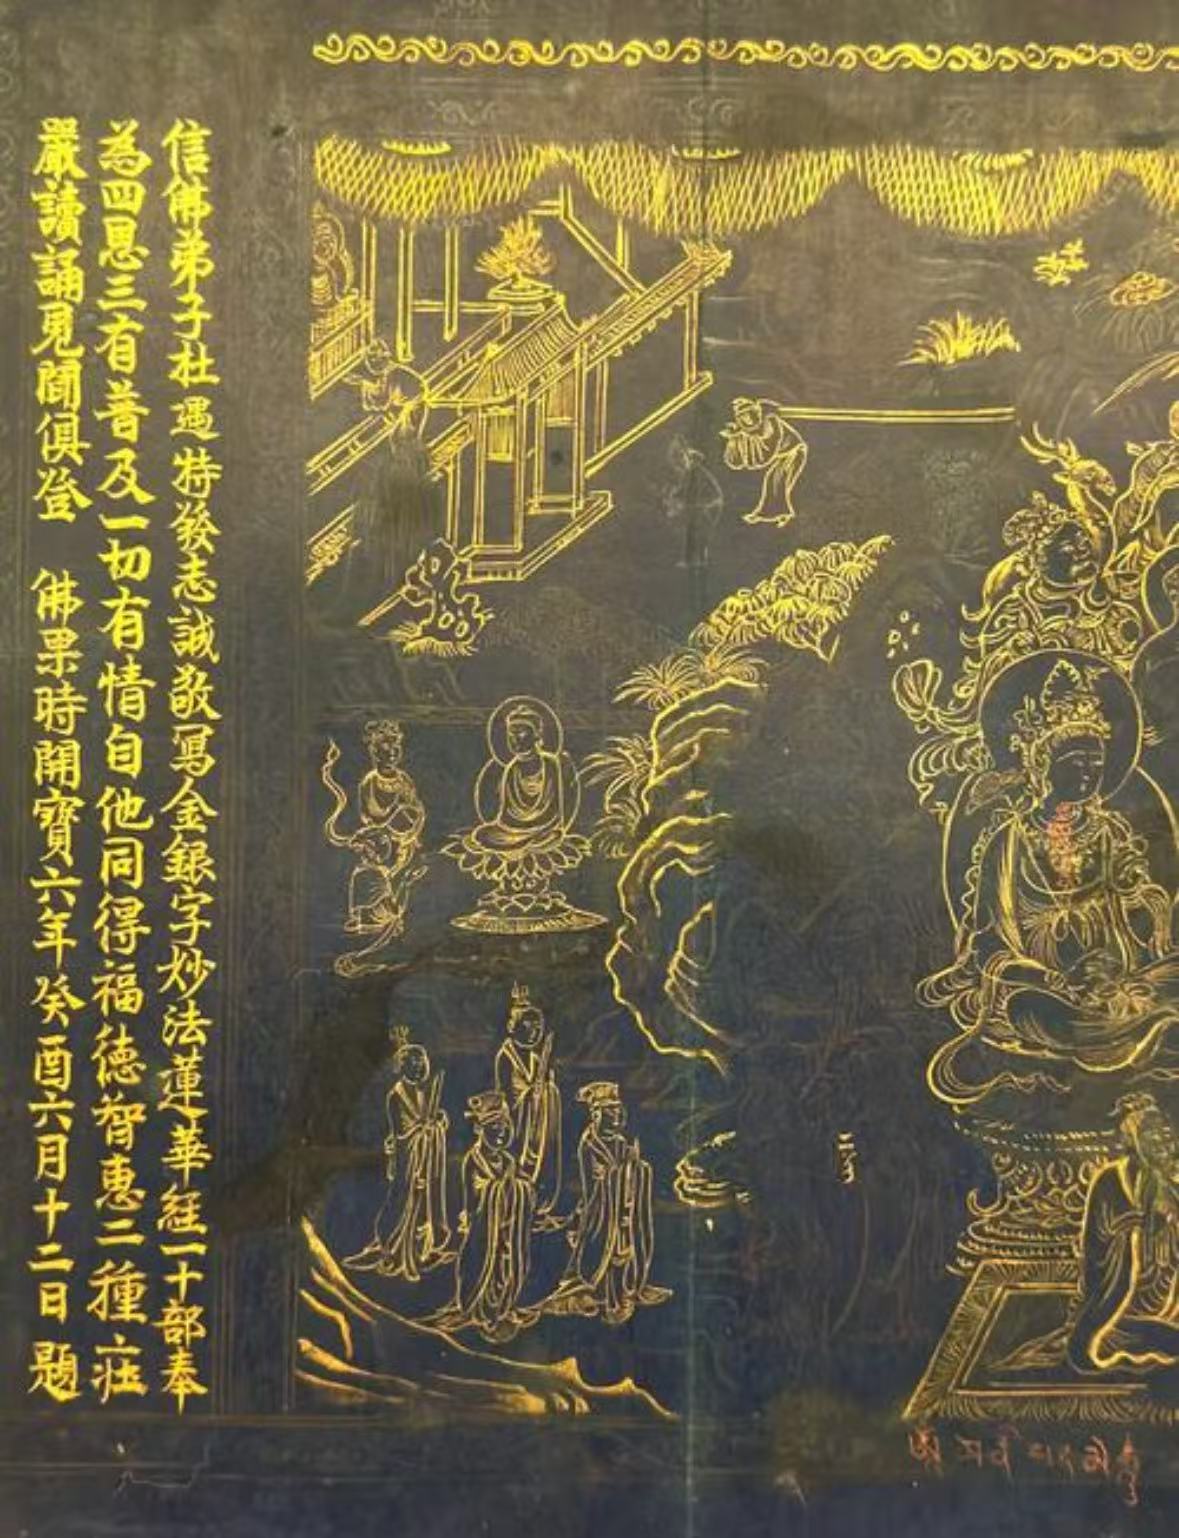 信佛弟子杜遇特發志誠敬寫金銀字妙法蓮華經一十部奉
為四恩三有普及一切有情自他同得福德智惠二種庄
嚴讀誦見聞俱登　佛果時開寶六年癸酉六月十二日題